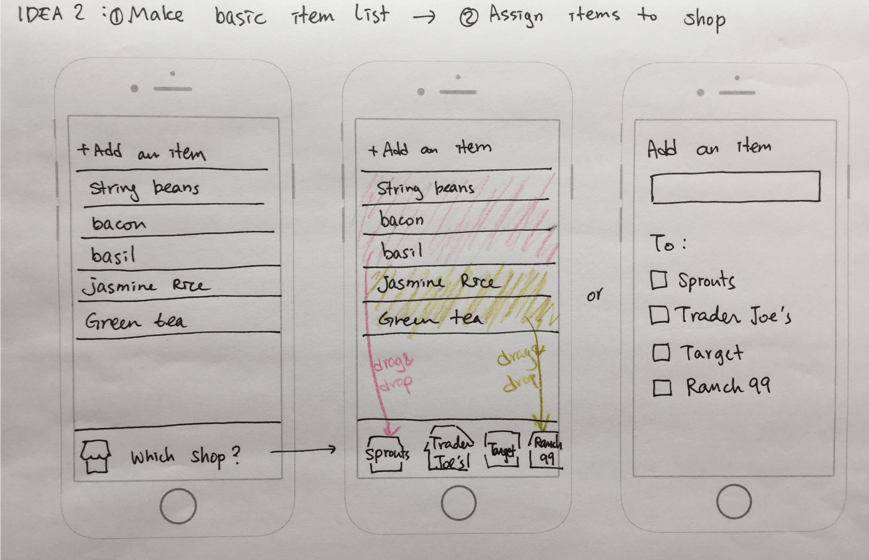 IDEA 2 : ① Make basic item list → ② Assign items to shop
+ Add an item
String beans
bacon
basil
Jasmine Rice
Green tea
Which shop?
+ Add an item
String beans
bacon
basil
Jasmine Rice
Green tea
drag &
drop
drag &
drop
Sprouts
Trader
Joe's
Target
Ranch
99
or
Add an item
To :
Sprouts
Trader Joe's
Target
Ranch 99